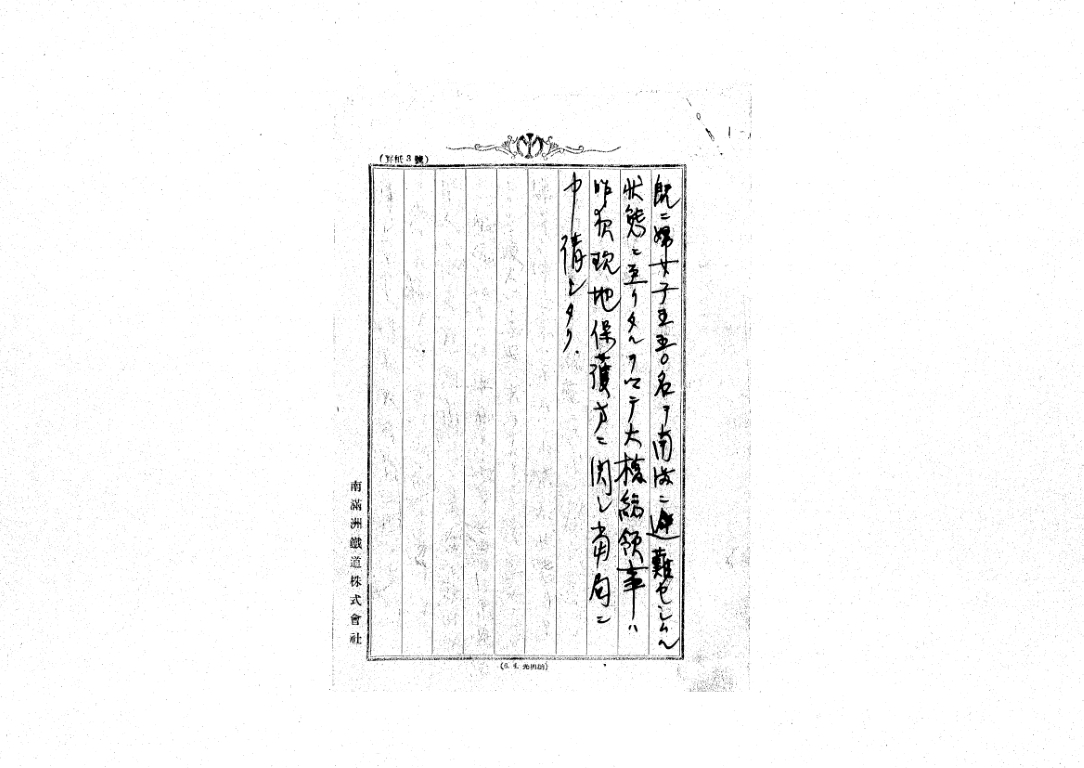 (野紙3號)
既ニ婦女子五五〇名ヲ南満ニ避難セシムル
状態ニ至リタルヲ以テ大橋総領事ハ
昨夜現地保護方ニ関シ当局ニ
申請シタリ.
南滿洲鐵道株式會社